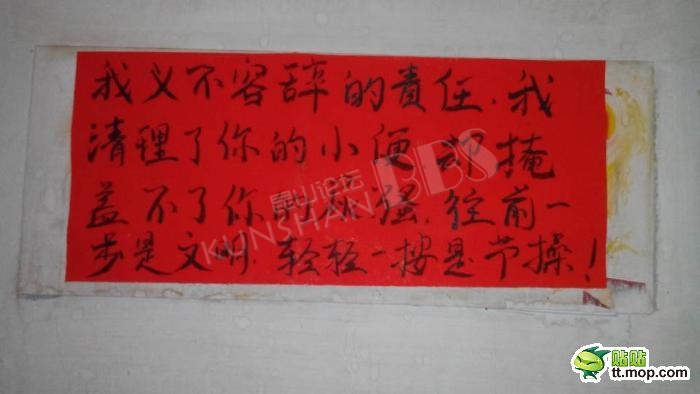 我义不容辞的責任.我
清理了你的小便却掩
盖不了你的强.往前一
步是文明.轻轻一按是节操!
昆山论坛
KUNSHAN BBS
贴贴
tt.mop.com